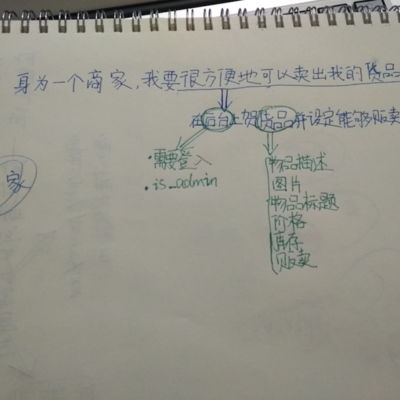 身为一个商家,我要很方便地可以卖出我的货品
在后台上架货品并设定能够贩卖
·需要登入
·is_admin
物品描述
图片
物品标题
价格
库存
贩卖
家